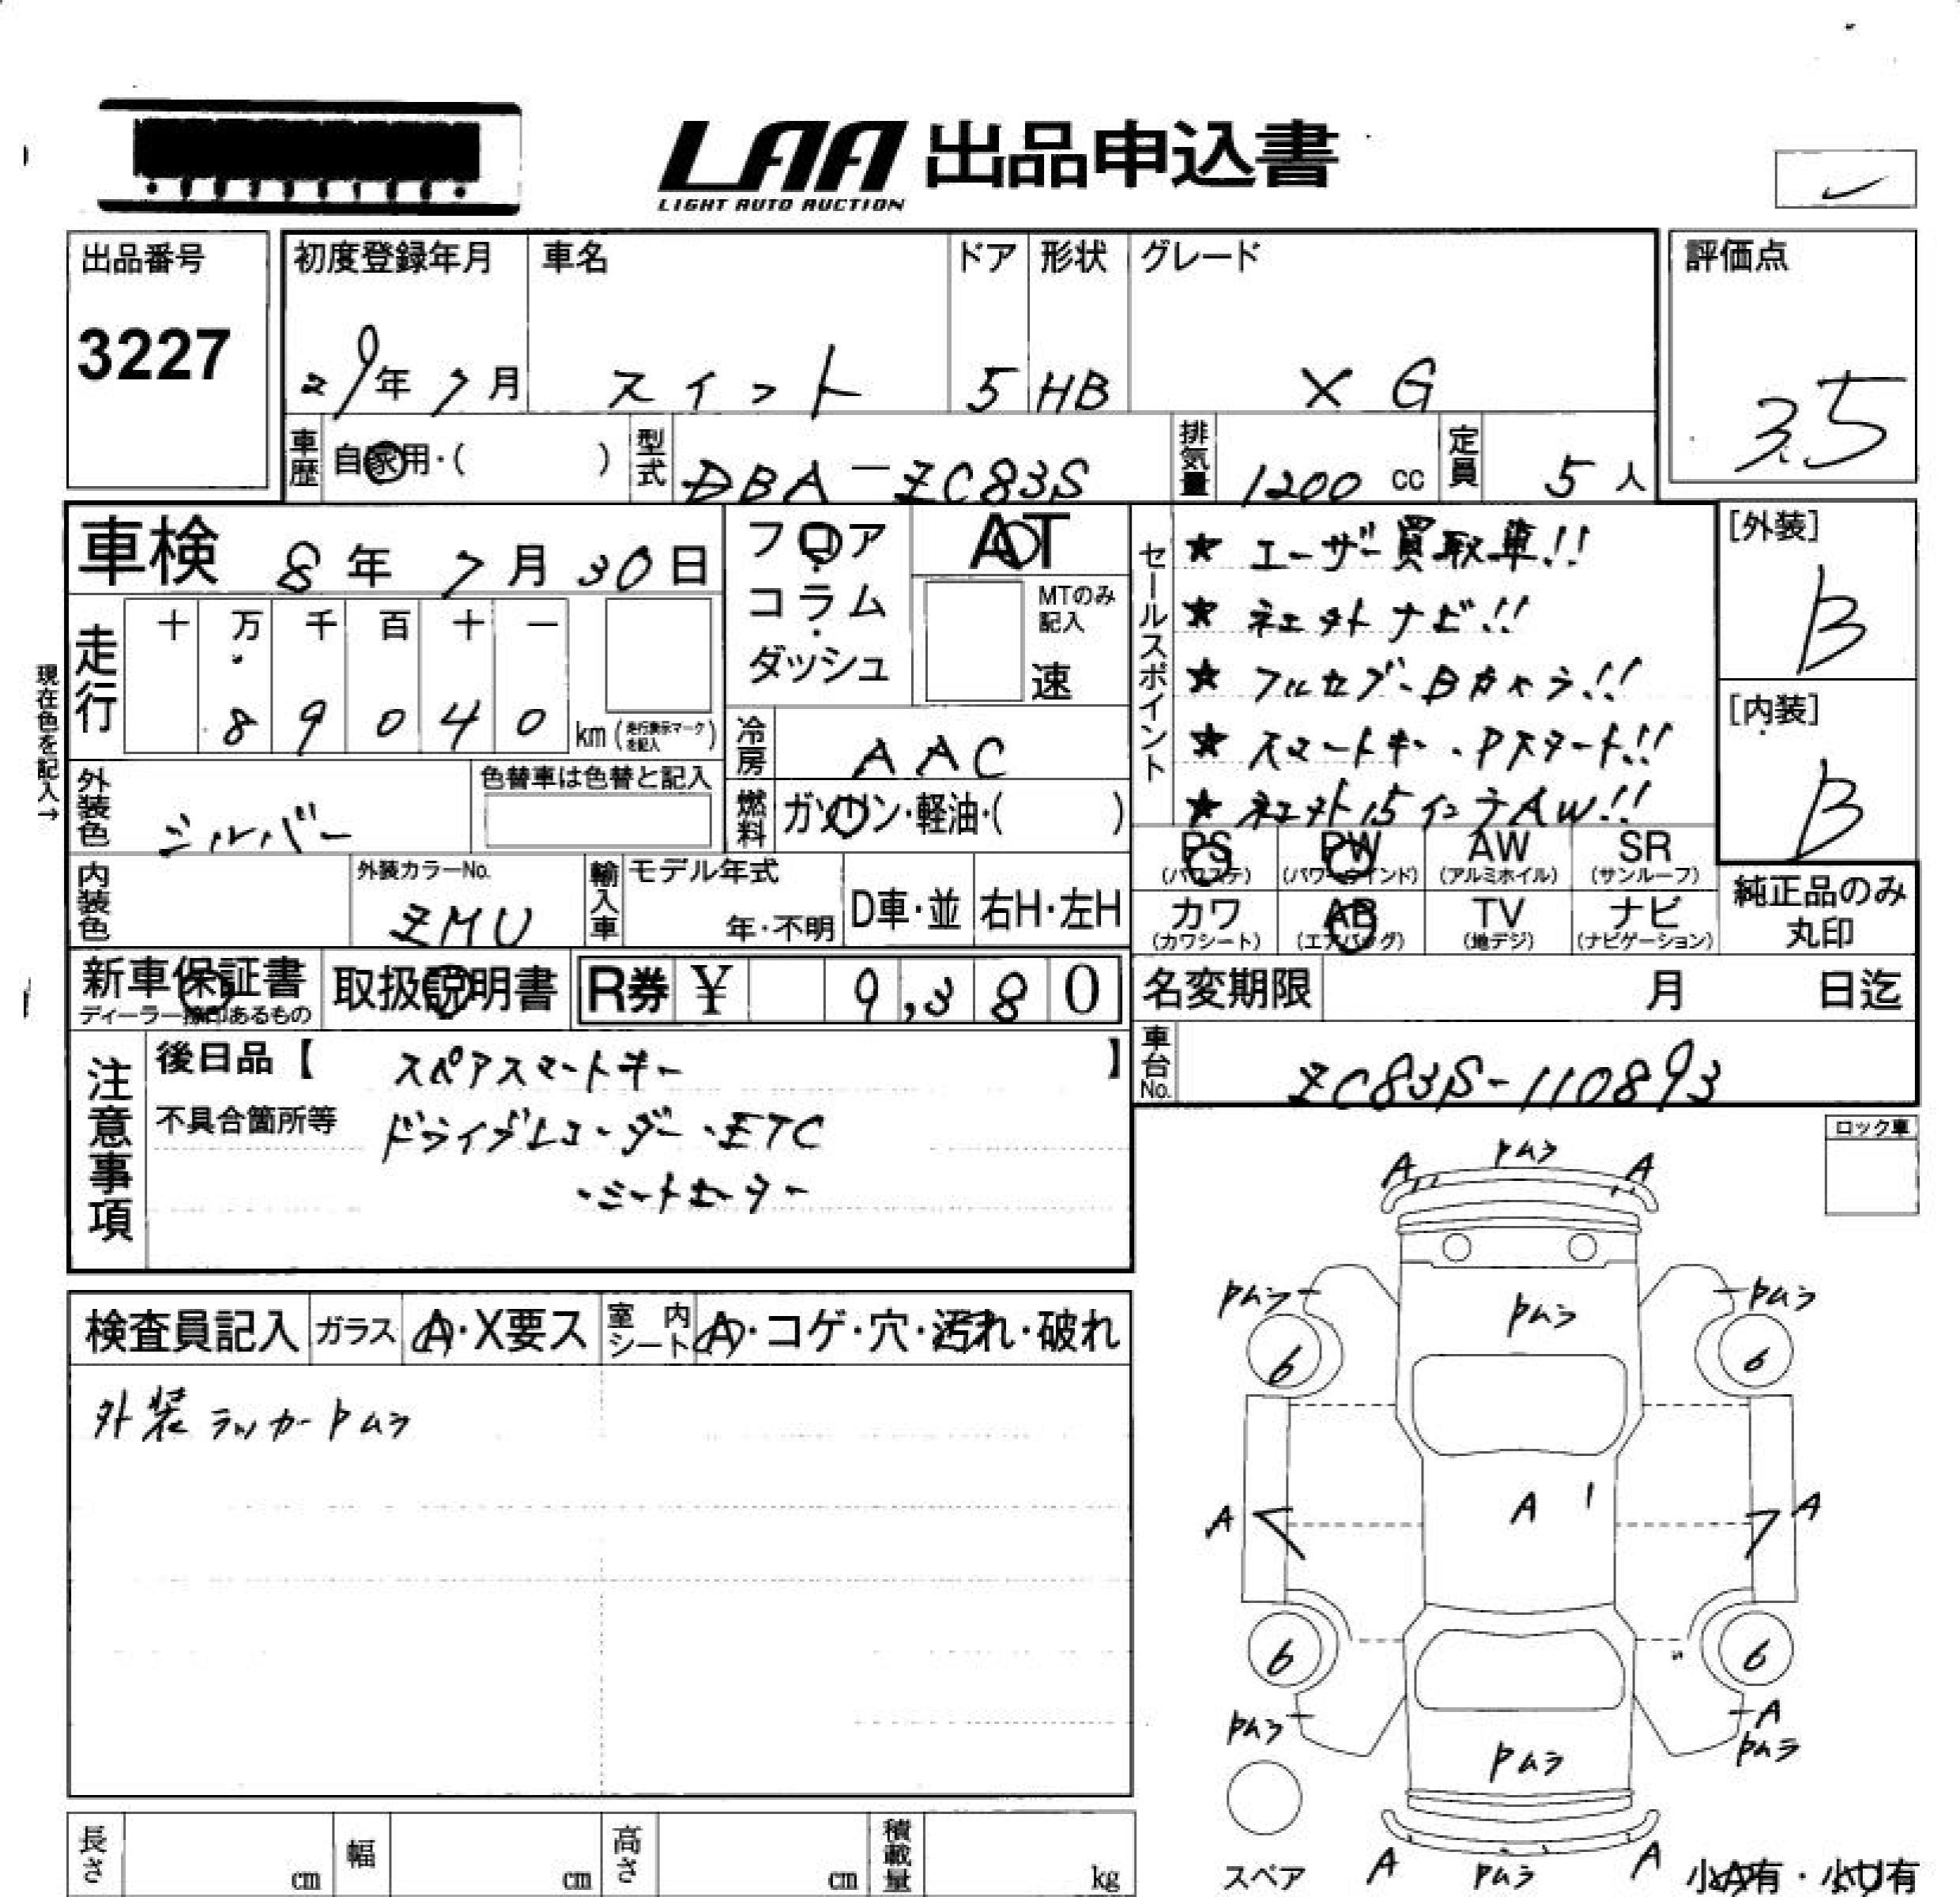 LAA 出品申込書
LIGHT AUTO AUCTION
出品番号
3227
初度登録年月
29年7月
車名
スイフト
ドア
5
形状
HB
グレード
XG
評価点
3.5
車歴
自家用・( )
型式
DBA-ZC83S
排気量
1200 cc
定員
5人
車検 8年7月30日
フロア・コラム・ダッシュ
AT
MTのみ記入
速
セールスポイント
★ユーザー買取車!!
★ナビ!!
★フルセグ・Bカメラ!!
★スマートキー・Pスタート!!
★15インチAW!!
[外装]
B
[内装]
B
現在色を記入→
走行
十万千百十一
89040 km (走行表示マークを記入)
冷房
AAC
外装色
シルバー
色替車は色替と記入
燃料
ガソリン・軽油・( )
内装色
外装カラーNo.
ZMU
輸入車
モデル年式
年・不明
D車・並
右H・左H
PS (パワステ)
PW (パワーウインド)
AW (アルミホイル)
SR (サンルーフ)
カワ (カワシート)
AB (エアバッグ)
TV (地デジ)
ナビ (ナビゲーション)
純正品のみ丸印
新車保証書
ディーラー捺印あるもの
取扱説明書
R券 ¥ 9,380
名変期限 月 日迄
車台No.
ZC83S-110893
注意事項
後日品【 スペアスマートキー 】
不具合箇所等
ドライブレコーダー・ETC
・シートヒーター
ロック車
検査員記入
ガラス
A・X要ス
室内シート
A・コゲ・穴・汚れ・破れ
外装ラッカーPムラ
A Pムラ A
Pムラ Pムラ Pムラ
6 6
A A A
6 6
Pムラ A
Pムラ Pムラ
スペア
A Pムラ A
小A有・小U有
長さ cm
幅 cm
高さ cm
積載量 kg